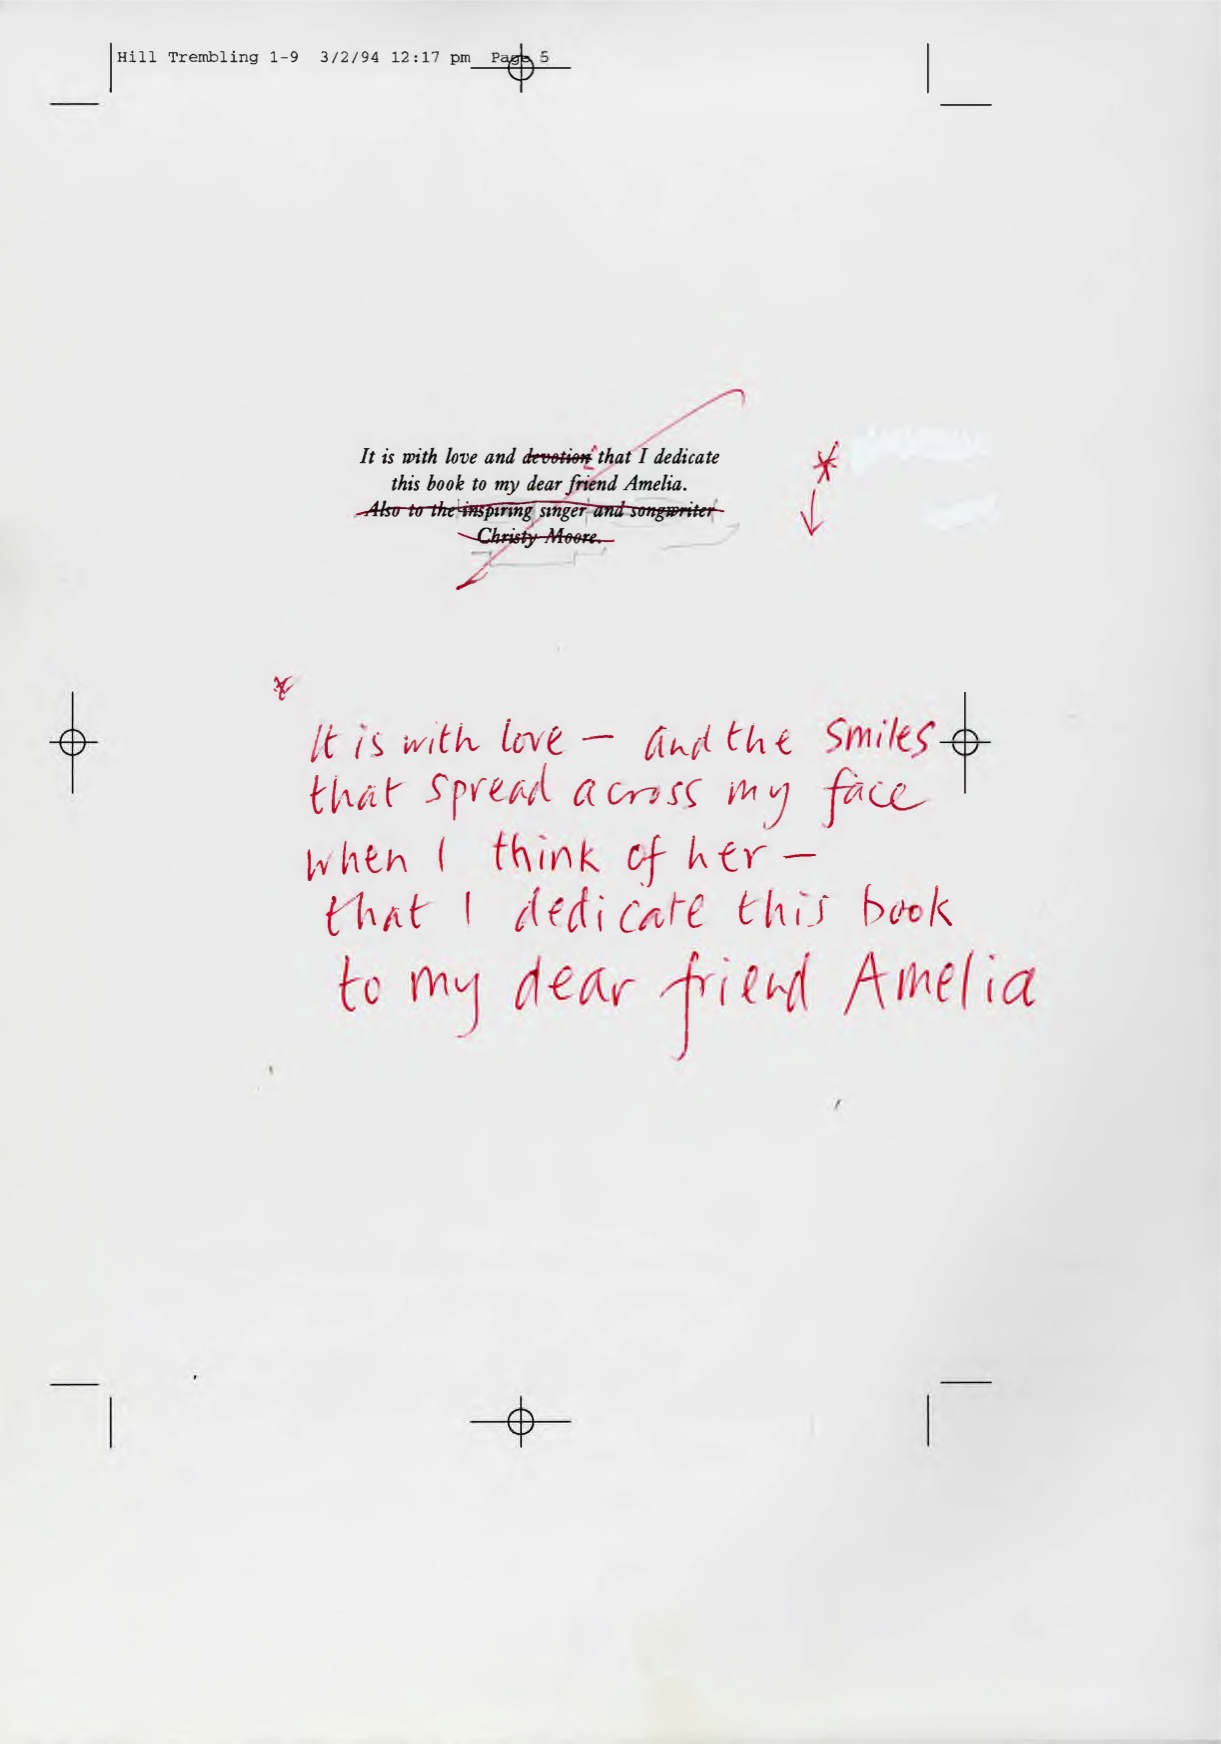 Hill Trembling 1-9 3/2/94 12:17 pm Page 5
It is with love and devotion that I dedicate
this book to my dear friend Amelia.
Also to the inspiring singer and songwriter
Christy Moore.
It is with love — and the smiles
that spread across my face
when I think of her —
that I dedicate this book
to my dear friend Amelia